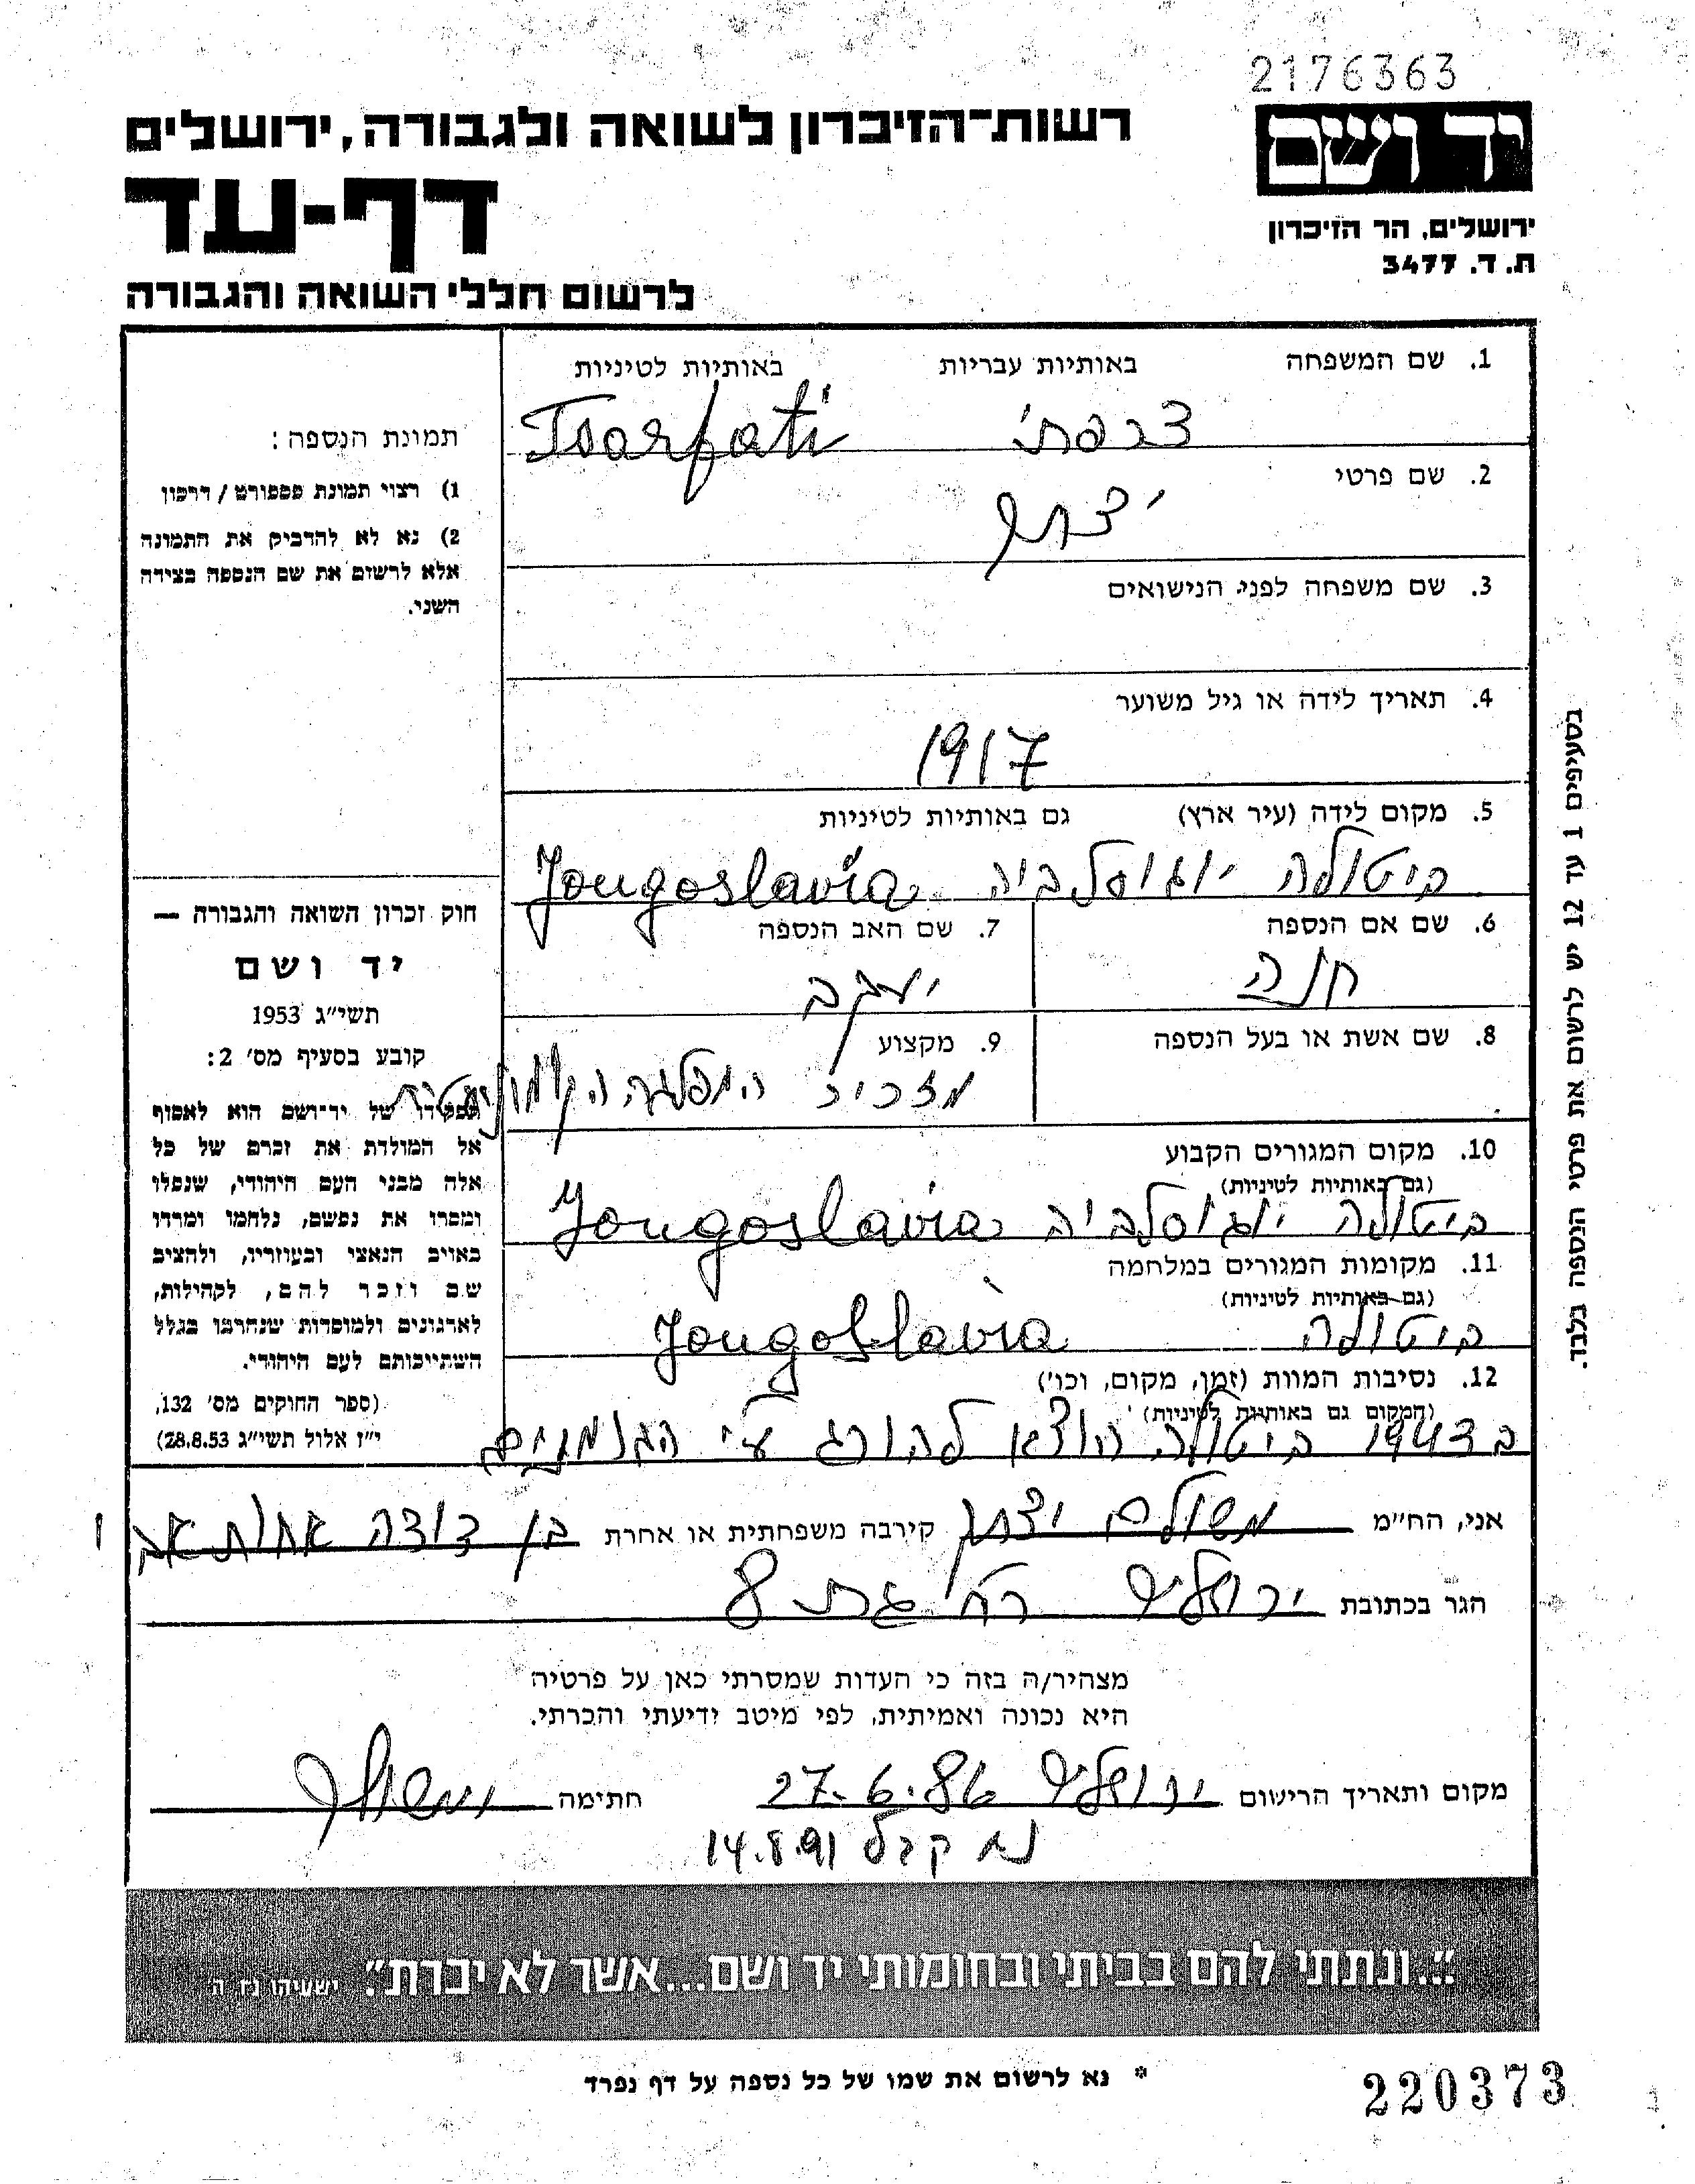 2176363
רשות־הזיכרון לשואה ולגבורה, ירושלים
יד ושם
דף-עד
ירושלים, הר הזיכרון
ת.ד. 3477
לרשום חללי השואה והגבורה
1. שם המשפחה באותיות עבריות באותיות לטיניות
צרפתי Tsarfati
2. שם פרטי
יצחק
3. שם משפחה לפני הנישואים
4. תאריך לידה או גיל משוער
1917
5. מקום לידה (עיר ארץ) גם באותיות לטיניות
ביטולה יוגוסלביה Jougoslavia
6. שם אם הנספה 7. שם האב הנספה
חנה יעקב
8. שם אשת או בעל הנספה 9. מקצוע
מזכיר המפלגה הקומוניסטית
10. מקום המגורים הקבוע
(גם באותיות לטיניות)
ביטולה יוגוסלביה Jougoslavia
11. מקומות המגורים במלחמה
(גם באותיות לטיניות)
ביטולה Jougoslavia
12. נסיבות המוות (זמן, מקום, וכו')
(המקום גם באותיות לטיניות)
ב 1943 ביטולה הוצא להורג ע"י הגרמנים
תמונת הנספה:
1) רצוי תמונת פספורט / דרכון
2) נא לא להדביק את התמונה
אלא לרשום את שם הנספה בצידה
השני.
חוק זכרון השואה והגבורה —
יד ושם
תשי״ג 1953
קובע בסעיף מס׳ 2:
תפקידו של יד־ושם הוא לאסוף
אל המולדת את זכרם של כל
אלה מבני העם היהודי, שנפלו
ומסרו את נפשם, נלחמו ומרדו
באויב הנאצי ובעוזריו, ולהציב
שם וזכר להם, לקהילות,
לארגונים ולמוסדות שנחרבו בגלל
השתייכותם לעם היהודי.
(ספר החוקים מס׳ 132,
י״ז אלול תשי״ג 28.8.53)
בסעיפים 1 עד 12 יש לרשום את פרטי הנספה בלבד.
אני, הח״מ משולם יצחק קירבה משפחתית או אחרת בן דודה אחות אבי
הגר בכתובת ירושלים גת 8
מצהיר/ה בזה כי העדות שמסרתי כאן על פרטיה
היא נכונה ואמיתית, לפי מיטב ידיעתי והכרתי.
מקום ותאריך הרישום ירושלים 27.6.86 חתימה
קבל 14.8.91
״...ונתתי להם בביתי ובחומותי יד ושם...אשר לא יכרת״. ישעיהו נו ה
* נא לרשום את שמו של כל נספה על דף נפרד
220373